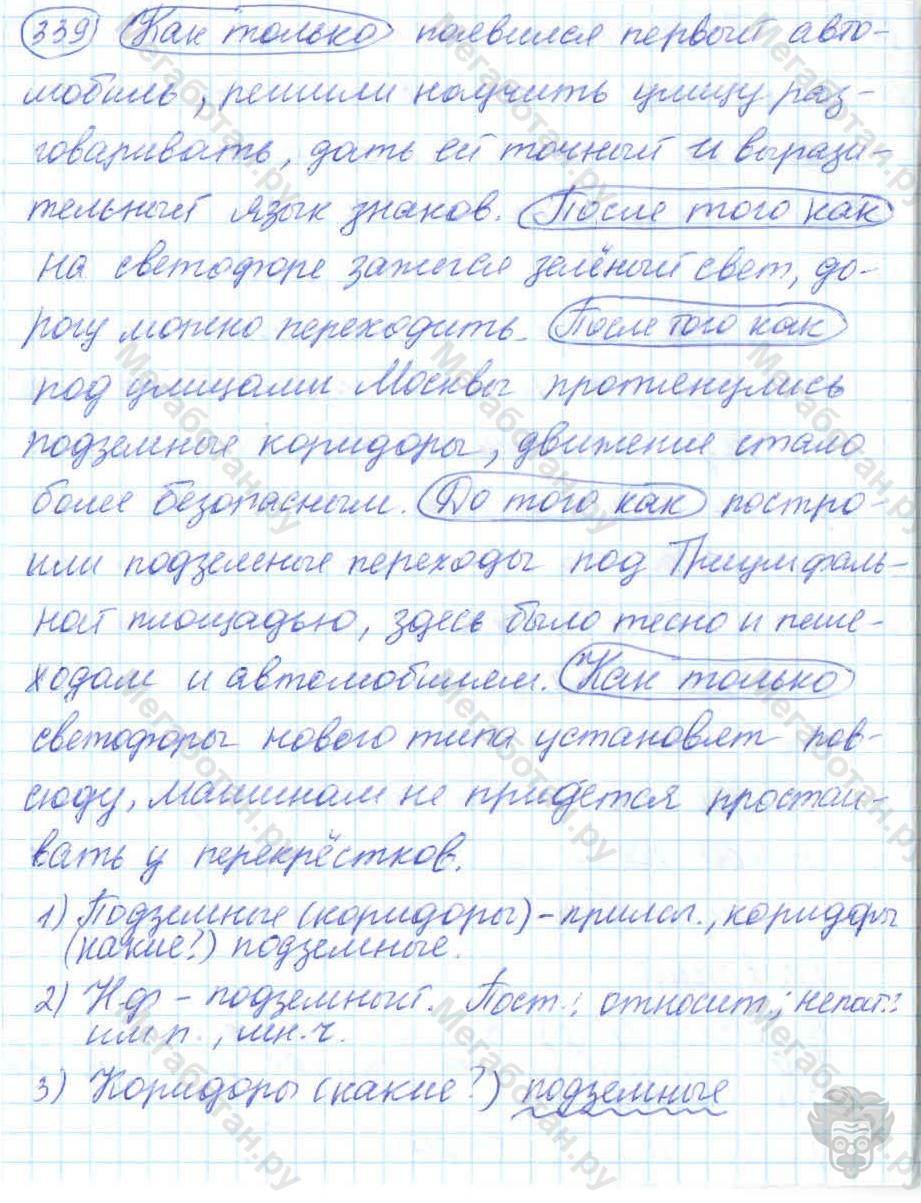 339) Как только появился первый авто-
мобиль, решили научить улицу раз-
говаривать, дать ей точный и вырази-
тельный язык знаков. После того как
на светофоре зажегся зелёный свет, до-
рогу можно переходить. После того как
под улицами Москвы протянулись
подземные коридоры, движение стало
более безопасным. До того как постро-
или подземные переходы под Триумфаль-
ной площадью, здесь было тесно и пеше-
ходам и автомобилям. Как только
светофоры нового типа установят пов-
сюду, машинам не придётся простаи-
вать у перекрёстков.
1) Подземные (коридоры) – прилаг., коридоры
(какие?) подземные.
2) Н.ф – подземный. Пост.: относит.; непост.:
им.п., мн.ч.
3) Коридоры (какие?) подземные
Мегаботан.ру